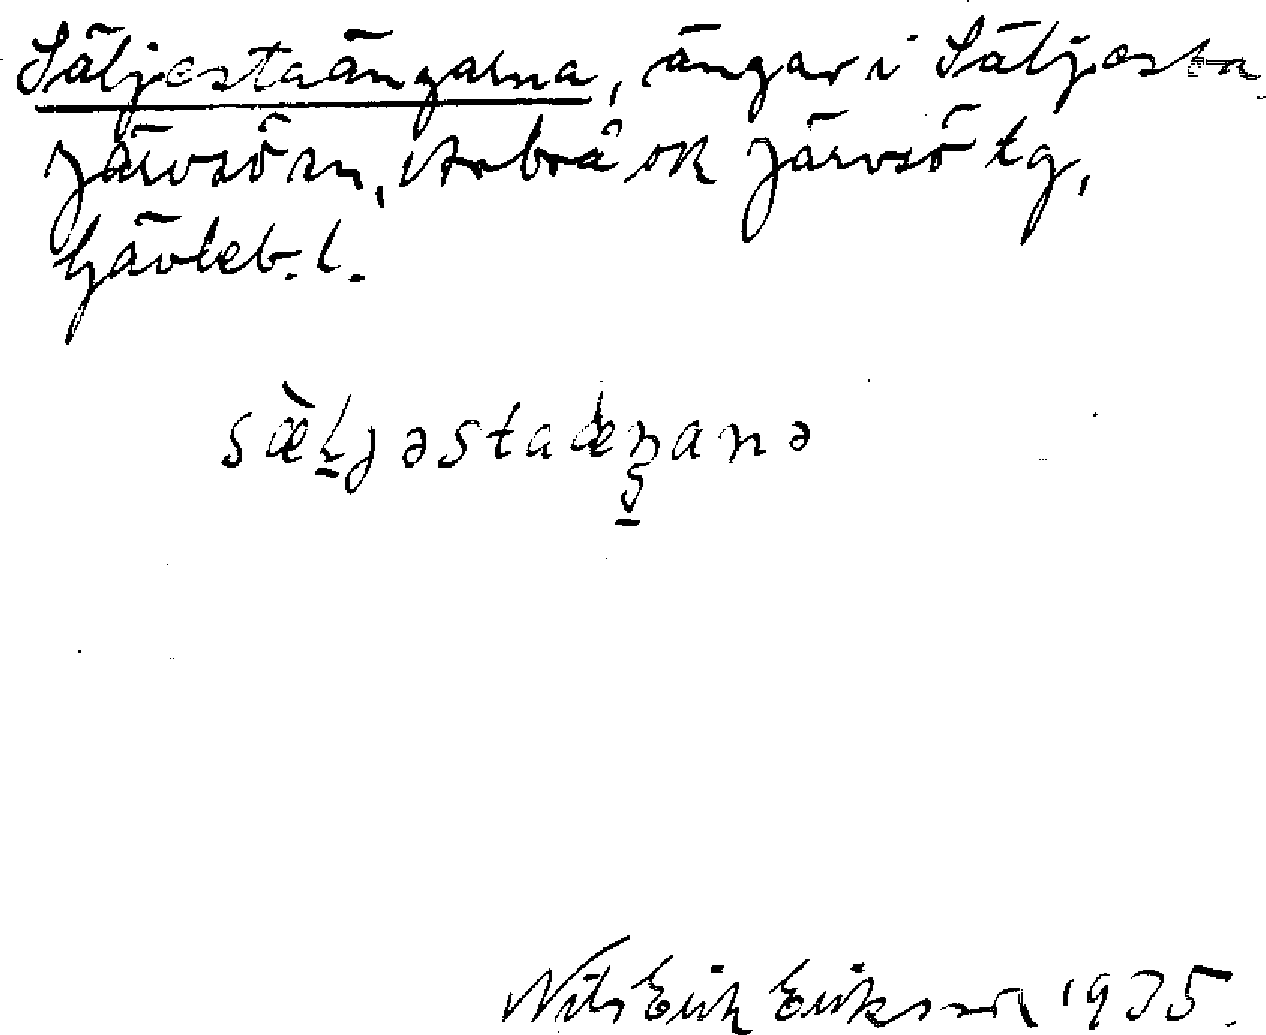 Säljestaängarna, ängar i Säljesta
Järvsö sn, Arbrå ok Järvsö tg,
Gävleb. l.
sæ̀ḷjəstaæŋanə
Nils Erik Eriksson 1935.